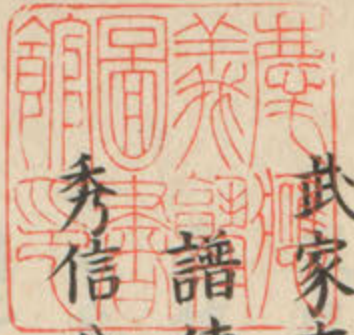 慶應
義塾
圖書
館印
武家
譜
秀信